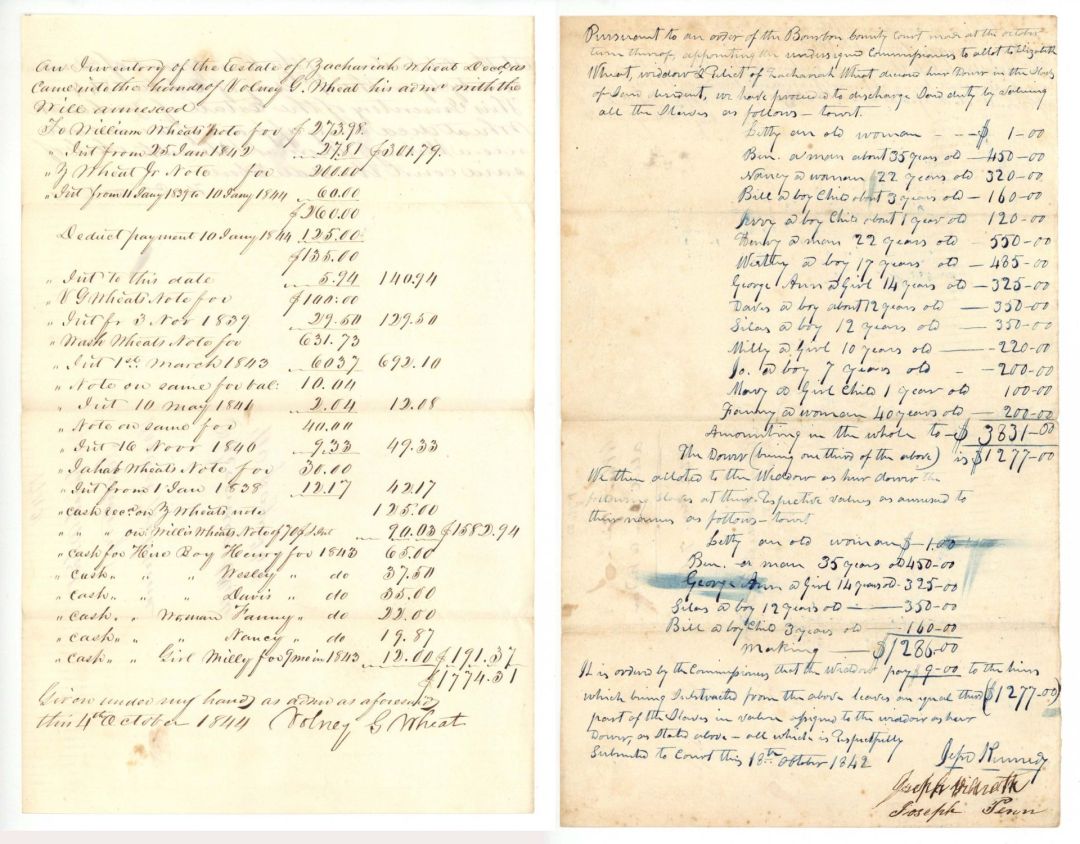 An Inventory of the Estate of Zachariah Wheat Decd as
Came into the hands of Volney G. Wheat his admr with the
Will annexed
To William Wheats Note for $273.98
" Int from 25 Jan 1842 27.81 $301.79
" Z Wheat Jr Note for 200.00
" Int from 11 Jany 1839 to 10 Jany 1844 60.00
$260.00
Deduct payment 10 Jany 1844 125.00
$135.00
" Int to this date 5.94 140.94
" V G Wheats Note for $100.00
" Int fr 3 Nov 1839 29.50 129.50
" Wash Wheats Note for 631.73
" Int 1st March 1843 60.37 692.10
" Note on same for bal: 10.04
" Int 10 May 1841 2.04 12.08
" Note on same for 40.00
" Int 16 Novr 1840 9.33 49.33
" Wheats Note for 30.00
" Int from 1 Jan 1838 12.17 42.17
" cash recc on Z Wheats note 125.00
" " on Willis Wheats Note of 70$ & Int 90.03 $1582.94
" cash for Hire Boy Henry for 1843 65.00
" cash " " Wesley " do 37.50
" cash " " Davis " do 35.00
" cash " Woman Fanny " do 22.00
" cash " " Nancy " do 19.87
" cash " " Girl Milly for 9 mo in 1843 12.00 $191.37
$1774.31
Given under my hand as admr as aforesaid
this 4th October 1844 Volney G Wheat
Pursuant to an order of the Bourbon County Court made at the October
term thereof, appointing the undersigned Commissioners to allot to Elizabeth
Wheat, widow & Relict of Zachariah Wheat deceased hur Dower in the Slaves
of Said decedent, we have proceeded to discharge Said duty by valuing
all the Slaves as follows - towit.
Letty an old woman - - - $ 1-00
Ben. a man about 35 years old - 450-00
Nancy a woman 22 years old 320-00
Bill a boy Child about 3 years old - 160-00
Jerry a boy Child about 1 year old 120-00
Henry a man 22 years old - 550-00
Westly a boy 17 years old - 485-00
George Ann a Girl 14 years old - 325-00
Davis a boy about 12 years old - 350-00
Silas a boy 12 years old - 350-00
Milly a Girl 10 years old - 220-00
Jo. a boy 7 years old - 200-00
Mary a Girl Child 1 year old 100-00
Fanny a woman 40 years old - 200-00
Amounting in the whole to - $3831-00
The Dower (being one third of the above) is $1277-00
We then allotted to the Widdow as hur dower the
following Slaves at their Respective values as annexed to
their names as follows - towit
Letty an old woman $ - 1.00
Ben. a man 35 years old 450-00
George Ann a Girl 14 years old - 325-00
Silas a boy 12 years old - 350-00
Bill a boy Child 3 years old - 160-00
Making - $1286-00
It is ordered by the Commissioners that the Widdow pay $9-00 to the heirs
which being Subtracted from the above leaves an equal third ($1277-00)
part of the Slaves in value assigned to the widdow as hur
Dower, as Stated above - all which is Respectfully
Submitted to Court this 18th October 1842
Kennedy
Joseph
Joseph Penn